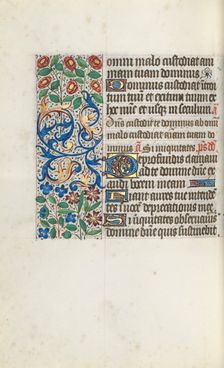 omni malo custodiat ani
mam tuam dominus
Dominus custodiat introi
tum tuū et exitum tuum
ex hoc nūc et usq; in seculum. a
Dn̄s custodit te dominus ab om̄i
malo custodiat
dominus.
a Si iniquitates. ps̄ dd
De profundis clamaui
ad te domine dn̄e ex
audi vocem meam
Fiant aures tue intende
tes
deprecationis mee
Si iniquitates obseruaueris
domine dn̄e quis sustinebit